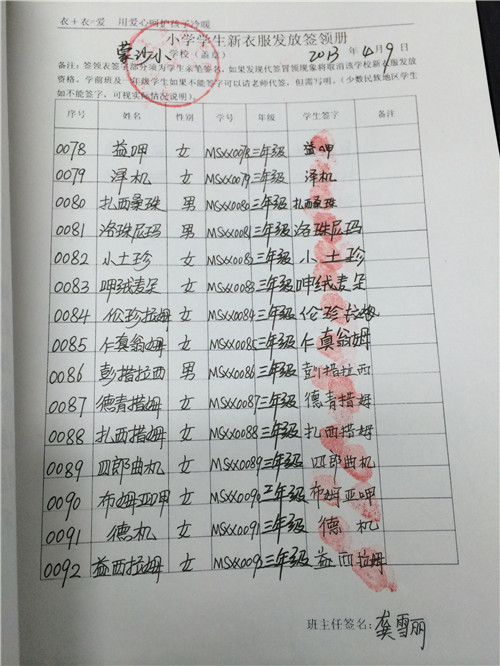 衣+衣=爱 用爱心呵护孩子冷暖
小学学生新衣服发放签领册
蒙沙小学校（盖章） 2013年4月9日
备注：签领表签字部分须为学生亲笔签名，如果发现代签冒领现象将取消该学校新衣服发放
资格。学前班及一年级学生如果不能签字可以请老师代签，但需写明。（少数民族地区学生
如不能签字，可视实际情况说明）。
序号 姓名 性别 学号 年级 学生签字 备注
0078 益呷 女 MSXX0078 三年级 益呷
0079 泽机 女 MSXX0079 三年级 泽机
0080 扎西桑珠 男 MSXX0080 三年级 扎西桑珠
0081 洛珠尼玛 男 MSXX0081 三年级 洛珠尼玛
0082 小土珍 女 MSXX0082 三年级 小土珍
0083 呷绒麦足 女 MSXX0083 三年级 呷绒麦足
0084 伦珍拉姆 女 MSXX0084 三年级 伦珍拉姆
0085 仁真翁姆 女 MSXX0085 三年级 仁真翁姆
0086 彭措拉西 男 MSXX0086 三年级 彭措拉西
0087 德青措姆 女 MSXX0087 三年级 德青措姆
0088 扎西措姆 女 MSXX0088 三年级 扎西措姆
0089 四郎曲机 女 MSXX0089 三年级 四郎曲机
0090 布姆亚呷 女 MSXX0090 三年级 布姆亚呷
0091 德机 女 MSXX0091 三年级 德机
0092 益西拉姆 女 MSXX0092 三年级 益西拉姆
班主任签名：龚雪丽